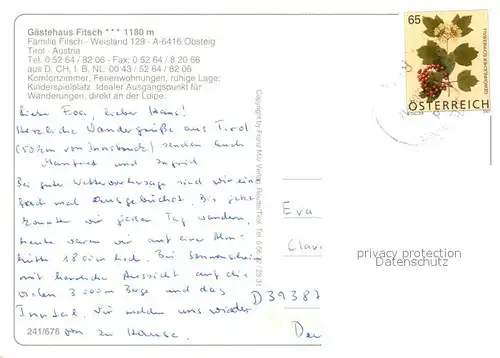 Gästehaus Fitsch *** 1180 m
Familie Fitsch - Weisland 129 - A-6416 Obsteig
Tirol - Austria
Tel. 0 52 64 / 82 06 - Fax: 0 52 64 / 8 20 66
aus D, CH, I, B, NL: 00 43 / 52 64 / 82 06
Komfortzimmer, Ferienwohnungen, ruhige Lage,
Kinderspielplatz. Idealer Ausgangspunkt für
Wanderungen, direkt an der Loipe.
Liebe Eva, lieber Hans!
Herzliche Wandergrüße aus Tirol
(50 km von Innsbruck) senden euch
Manfred und Ingrid
Bei guter Wettervorhersage sind wir
mal ausgebüchst. Bis jetzt
konnten wir jeden Tag wandern,
heute waren wir auf einer Alm-
hütte 1800 m hoch. Bei Sonnenschein
mit herrliche Aussicht auf die
vielen 3000m Berge und das
Inntal. Wir melden uns wieder
von zu Hause.
241/678
Copyright by Franz Milz Verlag, Reutte/Tirol, Tel.
65
GEWÖHNLICHER SCHNEEBALL
ÖSTERREICH
Eva
Clar
privacy protection
Datenschutz
D 39387